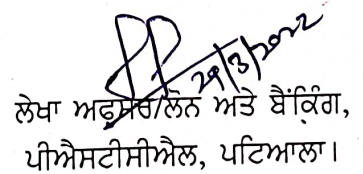 29/3/2022
ਲੇਖਾ ਅਫਸਰ/ਲੋਨ ਅਤੇ ਬੈਂਕਿੰਗ,
ਪੀਐਸਟੀਸੀਐਲ, ਪਟਿਆਲਾ।